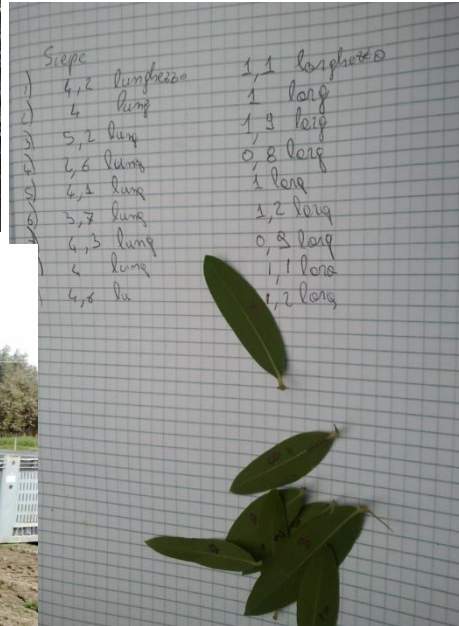 Siepe
1) 4,2 lunghezza 1,1 larghezza
2) 4 lung 1 larg
3) 5,2 lung 1,9 larg
4) 2,6 lung 0,8 larg
5) 4,1 lung 1 larg
6) 3,7 lung 1,2 larg
4,3 lung 0,9 larg
4 lung 1,1 larg
4,6 lu 1,2 larg